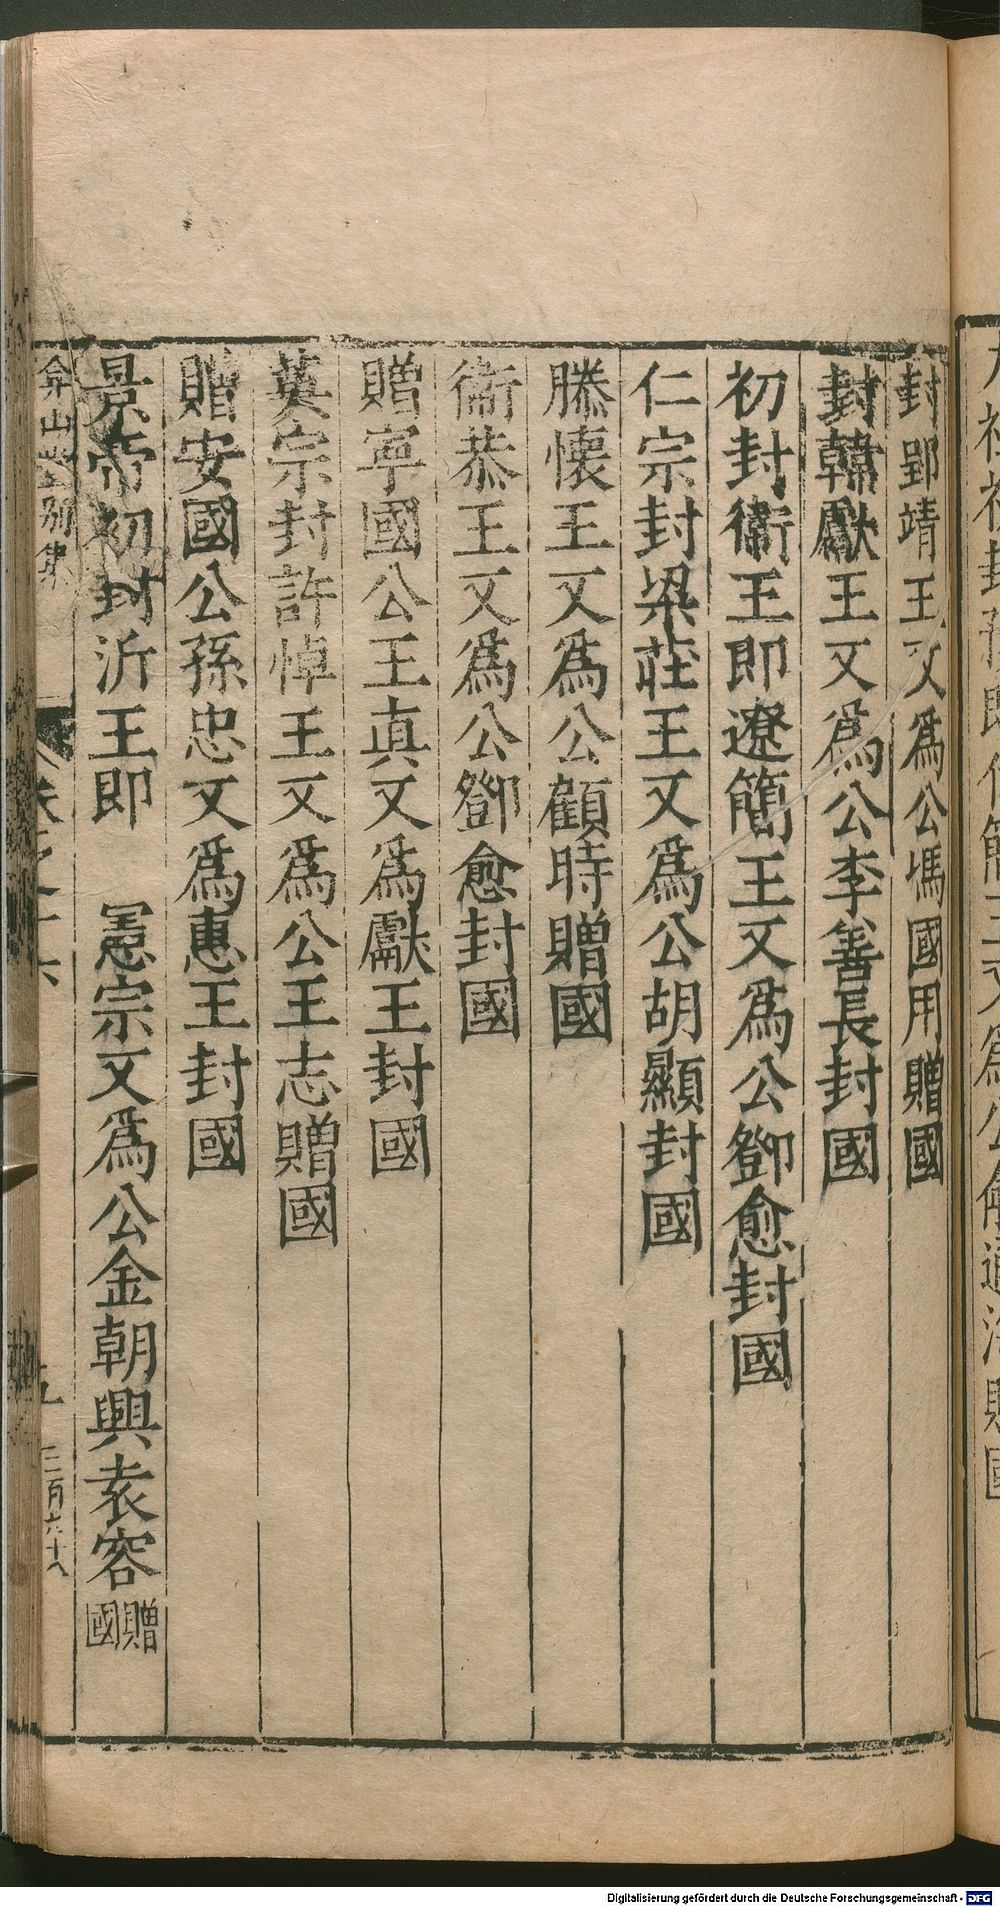 封郢靖王又爲公馮國用贈國
封韓獻王又爲公李善長封國
初封衞王即遼簡王又爲公鄧愈封國
仁宗封梁莊王又爲公胡顯封國
滕懷王又爲公顧時贈國
衞恭王又爲公鄧愈封國
贈寧國公王真又爲獻王封國
英宗封許悼王又爲公王志贈國
贈安國公孫忠又爲惠王封國
景帝初封沂王即 憲宗又爲公金朝興袁容贈國
弇山堂別集
卷之
三百六十八
Digitalisierung gefördert durch die Deutsche Forschungsgemeinschaft - DFG